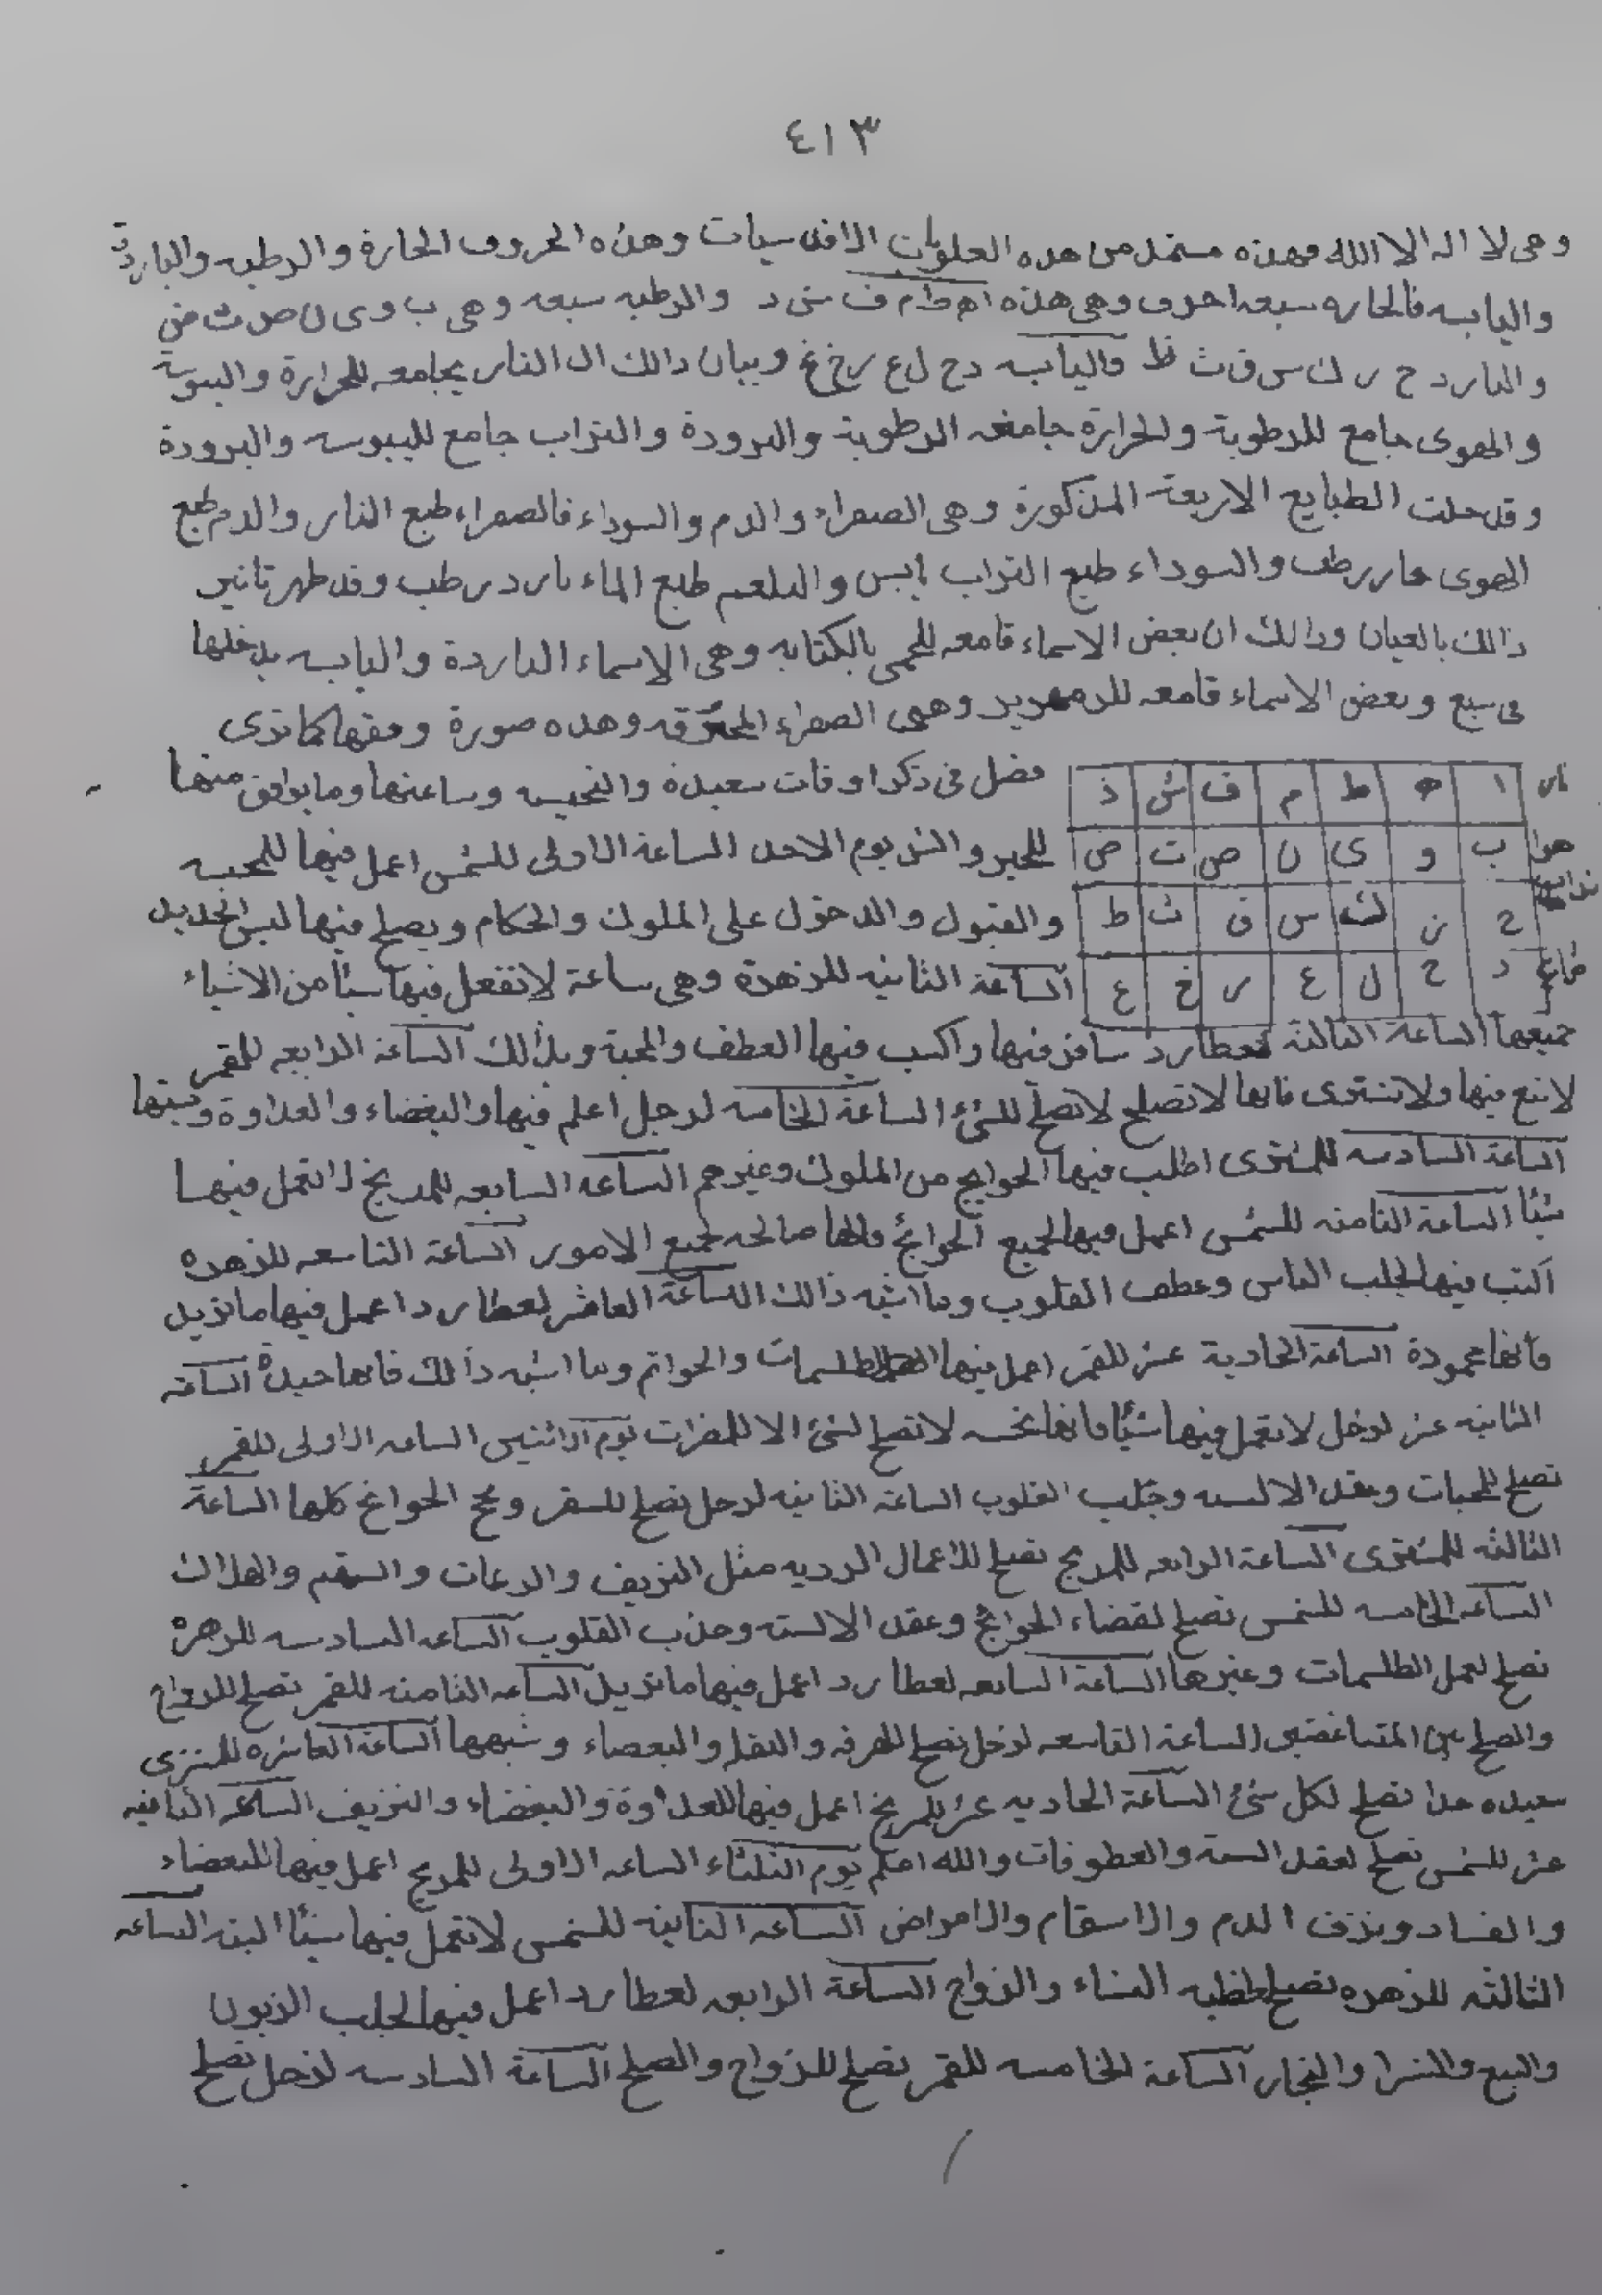 ٤١٣
وهى لا اله الا الله فهذه مستمد من هده العلويات الاقد سيات وهذه الحروف الحارة والرطبه والبارد
واليابسه فالحاره سبعه احرف وهى هذه ا ه ط م ف ش د والرطبه سبعه وهى ب و ى ن ص ت ض
والبارد ج ز ك س ق ث ظ واليابسه د ح ل ع ر خ غ وبيان دالك ان النار يجامعه للحرارة واليبوسة
والهوى جامع للرطوبة والحرارة جامعه الرطوبة والبرودة والتراب جامع لليبوسه والبرودة
وقد حلت الطبايع الاربعة المذكورة وهى الصفراء والدم والسوداء فالصفراء طبع النار والدم طبع
الهوى حار رطب والسوداء طبع التراب يابس والبلغم طبع الماء بارد رطب وقد ظهر تاثير
ذالك بالعيان ودالك ان بعض الاسماء قامعه للحمى بالكتابه وهى الاسماء الباردة واليابسه يدخلها
فى سبع وبعض الاسماء قامعه للزمهرير وهى الصفراء المحترقه وهده صورة وفقها كما ترى
نار ا ه ط م ف ش ذ
هوا ب و ى ن ص ت ض
ج ز ك س ق ث ظ
د ح ل ع ر خ غ
فصل فى ذكر اوقات سعيدة والنحيسه وساعتها وما يوافق منها
للخير والشر يوم الاحد الساعة الاولى للشمس اعمل فيها للمحبه
والقبول والدخول على الملوك والحكام ويصلح فيها لبس الجديد
الساعة الثانيه للزهرة وهى ساعة لاتفعل فيها سيأ من الاشياء
جميعها الساعة الثالثة لعطارد سافر فيها واكتب فيها العطف والمحبة وبذالك الساعة الرابعه للقمر
لاتبع فيها ولاتشترى فانها لاتصلح لاتصلح للشئ الساعة الخامسه لزحل اعلم فيها والبغضاء والعداوة وشبتها
الساعة السادسه للمشترى اطلب فيها الحوايج من الملوك وغيرهم الساعه السابعه للمريخ لاتعمل فيها
شئا الساعة الثامنه للشمس اعمل فيها لجميع الحوائج فانها صالحه لجميع الامور الساعة التاسعه للزهره
اكتب فيها لجلب الناس وعطف القلوب وما اشبه ذالك الساعة العاشر لعطارد اعمل فيها ماتريد
فانها محمودة الساعة الحادية عشر للقمر اعمل فيها الطلسمات والخواتم وما اشبه دالك فانها حيدة الساعة
الثانيه عشر لزحل لاتعمل فيها شيئا فانها نحسه لاتصلح لشئ الا للمضرات يوم الاثنين الساعه الاولى للقمر
تصلح للمحبات وعقد الالسنه وجلب القلوب الساعه الثانيه لزحل تصلح للسفر ونجح الحوائج كلها الساعة
الثالثه للمشترى الساعة الرابعه للمريخ تصلح للاعمال الرديه مثل النزيف والرعات والسقم والهلاك
الساعه الخامسه للشمس تصلح لقضاء الحوائج وعقد الالسنه وجذب القلوب الساعه السادسه للزهرة
تصلح لعمل الطلسمات وغيرها الساعة السابعه لعطارد اعمل فيها ماتريد الساعه الثامنه للقمر تصلح للزواج
والصلح بين المتباغضين الساعة التاسعه لزحل تصلح للفرقه والنقله والبغضاء وشبهها الساعة العاشره للمشترى
سعيده جدا تصلح لكل شئ الساعة الحاديه عشر للمريخ اعمل فيها للعداوة والبغضاء والنزيف الساعه الثانيه
عشر للشمس تصلح لعقد السنة والعطوفات والله اعلم يوم الثلثاء الساعه الاولى للمريخ اعمل فيها للبغضاء
والفساد ونزف الدم والاسقام والامراض الساعه الثانيه للشمس لاتعمل فيها شيئا البته الساعه
الثالثه للزهره تصلح لخطبه النساء والزواج الساعة الرابعه لعطارد اعمل فيها لجلب الزبون
والبيع والشرا والتجار الساعة الخامسه للقمر تصلح للزواج والصلح الساعة السادسه لزحل تصلح